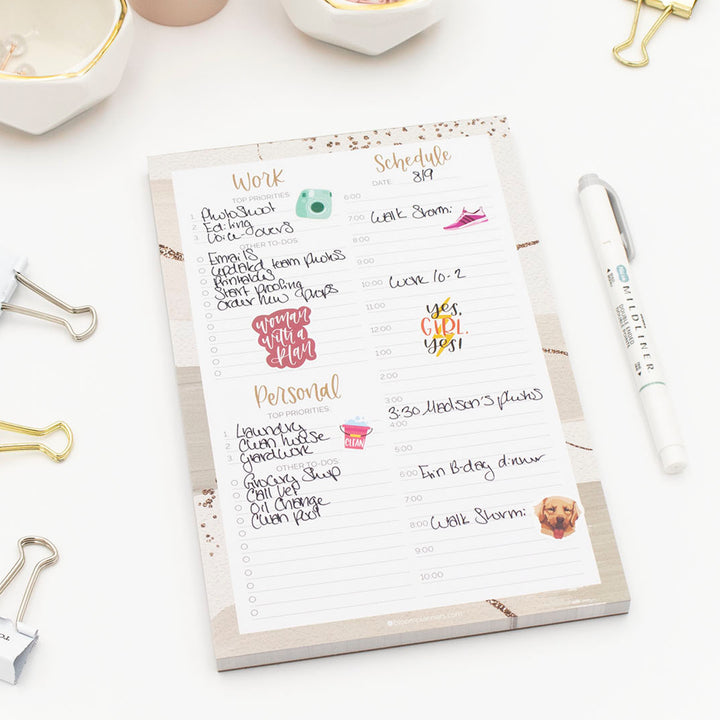 Work
TOP PRIORITIES
1 Photoshoot
2 Editing
3 Voice-overs
OTHER TO-DOS
Emails
Updated team photos
Printables
Start proofing
Order new props
woman
with a
plan
Personal
TOP PRIORITIES
1 Laundry
2 Clean house
3 Yardwork
CLEAN
OTHER TO-DOS
Grocery Shop
Call vet
Oil Change
Clean Pool
Schedule
DATE: 8/9
6:00
7:00 Walk Storm:
8:00
9:00
10:00 Work 10-2
11:00
12:00
1:00
2:00
yes,
GIRL,
yes!
3:00
3:30 Madison's photos
4:00
5:00
6:00 Erin B-day dinner
7:00
8:00 Walk Storm:
9:00
10:00
bloomplanners.com
MILDLINER
DOUBLE ENDED